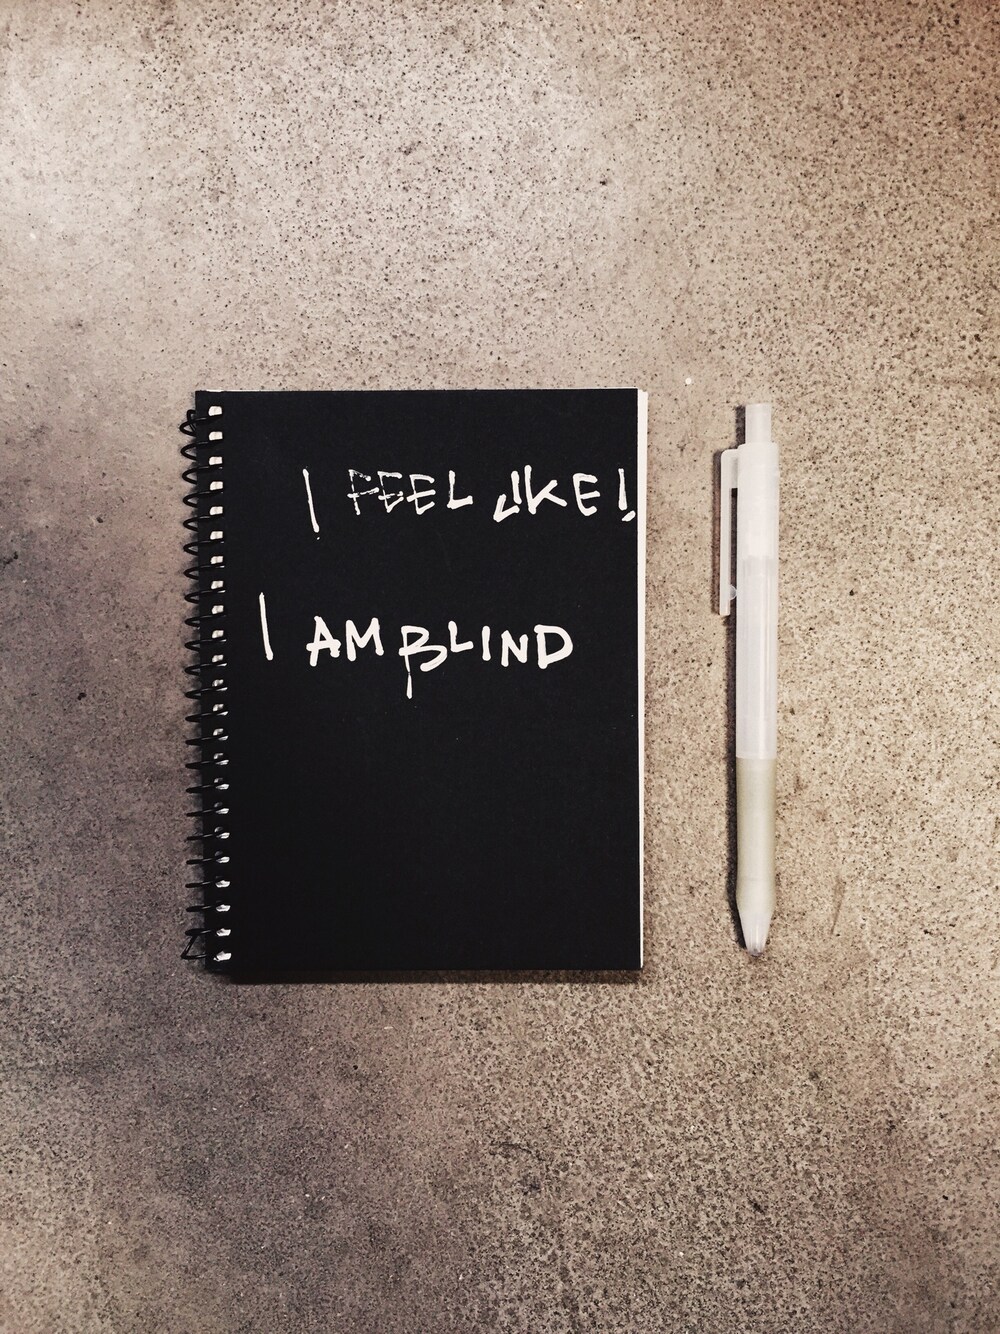 I FEEL LIKE!
I AM BLIND